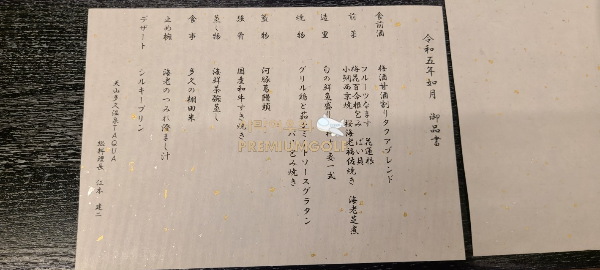 令和五年如月 御品書
食前酒 梅酒甘酒割りタクアブレンド
前菜 フルーツなます 花蓮根
梅花百合根包み ばい貝
小鯛西京焼 桜海老福佐焼き 海老芝煮
造里 旬の鮮魚盛り 一式
焼物 グリル鶏と茄子ミートソースグラタン
パイ包み焼き
蓋物 河豚蕪饅頭
強肴 国産和牛すき焼き
蒸し物 海鮮茶碗蒸し
食事 多久の棚田米
止め椀 海老のつみれ澄まし汁
デザート シルキープリン
天山多久温泉TAQUA
総料理長 江本 建二
PREMIUMGOLF